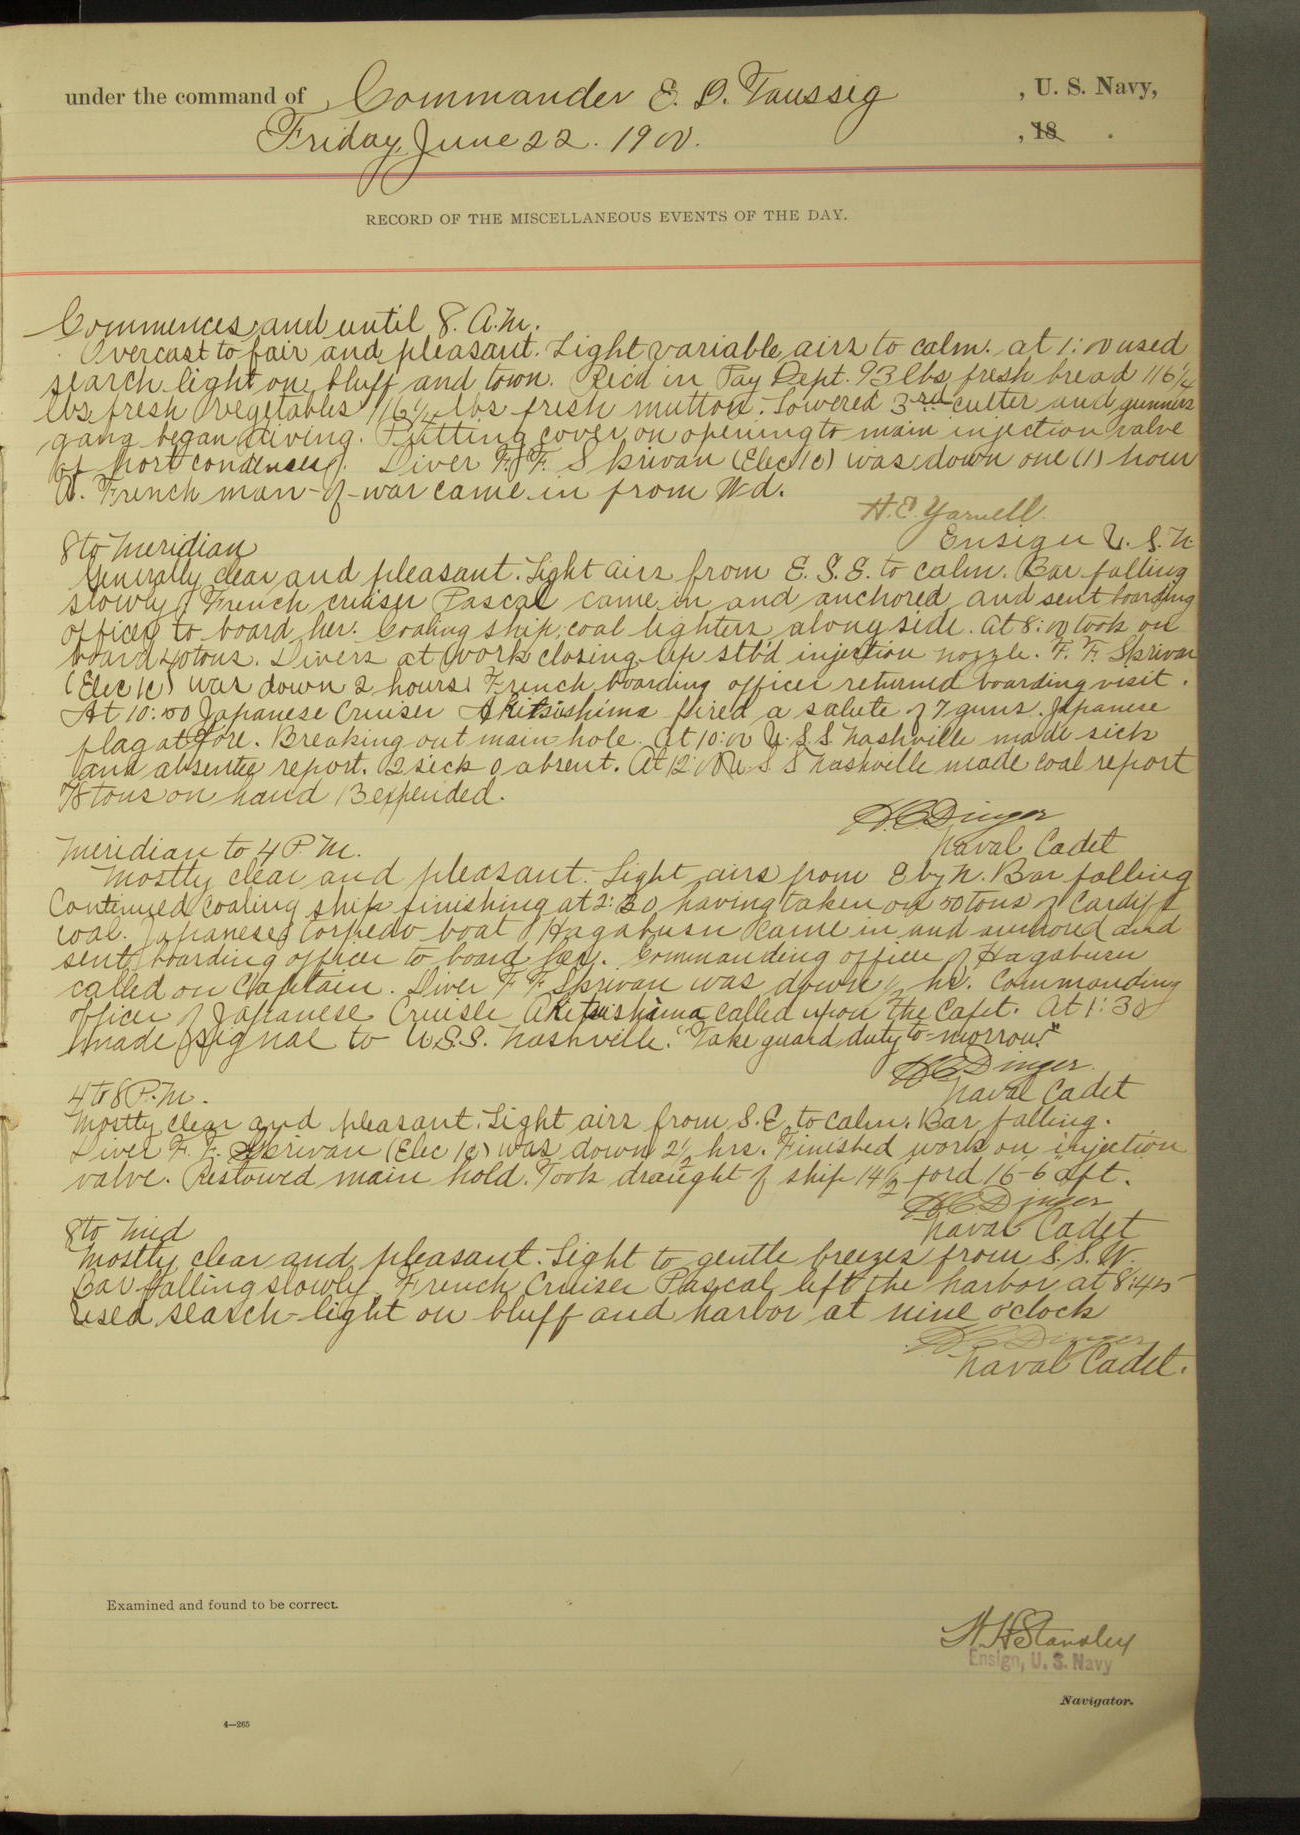 under the command of Commander E. D. Taussig , U. S. Navy,
Friday, June 22. 1900. , 18 .
RECORD OF THE MISCELLANEOUS EVENTS OF THE DAY.
Commences and until 8. A.M.
Overcast to fair and pleasant. Light variable airs to calm. at 1:00 used
search light on bluff and town. Rec'd in Pay Dept. 93 lbs fresh bread 116 1/4
lbs fresh vegetables 116 1/4 lbs fresh mutton. Lowered 3rd cutter and gunners
gang began diving. Putting cover on opening to main injection valve
of port condenser. Diver F. F. Skrivan (Elec 1c) was down one (1) hour
A. French man-of-war came in from Wd.
H. E. Yarnell.
Ensign U. S. N.
8 to Meridian
Generally clear and pleasant. Light airs from E. S. E. to calm. Bar falling
slowly. French cruiser Pascal came in and anchored and sent boarding
officer to board her. Coaling ship, coal lighters alongside. at 8:00 took on
board 40 tons. Divers at work closing up stb'd injection nozzle. F. F. Skrivan
(Elec 1c) was down 2 hours. French boarding officer returned boarding visit.
At 10:00 Japanese Cruiser Akitsushima fired a salute of 7 guns. Japanese
flag at fore. Breaking out main hole. At 10:00 U.S.S. Nashville made sick
and absentee report. 2 sick 0 absent. At 12:00 U S S Nashville made coal report
78 tons on hand 13 expended.
H. C. Dinger
Naval Cadet
Meridian to 4 P. M.
Mostly clear and pleasant. Light airs from E by N. Bar falling
Continued coaling ship finishing at 2:30 having taken on 50 tons of Cardiff
coal. Japanese torpedo boat Hagabusu came in and anchored and
sent boarding officer to board her. Commanding officer of Hagabusu
called on Captain. Diver F F Skrivan was down 1/2 hr. Commanding
officer of Japanese Cruiser Akitsushima called upon the Capt. At 1:30
made signal to U.S.S. Nashville. "Take guard duty to-morrow."
H C Dinger.
Naval Cadet
4 to 8 P. M.
Mostly clear and pleasant. Light airs from S. E. to calm. Bar falling.
Diver F. F. Skrivan (Elec 1c) was down 2 1/2 hrs. Finished work on injection
valve. Restowed main hold. Took draught of ship 14 1/2 ford 16-6 aft.
H C Dinger
Naval Cadet
8 to Mid
Mostly clear and pleasant. Light to gentle breezes from S. S. W.
Bar falling slowly. French Cruiser Pascal left the harbor at 8:45
Used search-light on bluff and harbor at nine o'clock
H C Dinger
Naval Cadet.
Examined and found to be correct.
W H Standley
Ensign, U. S. Navy
Navigator.
4—265